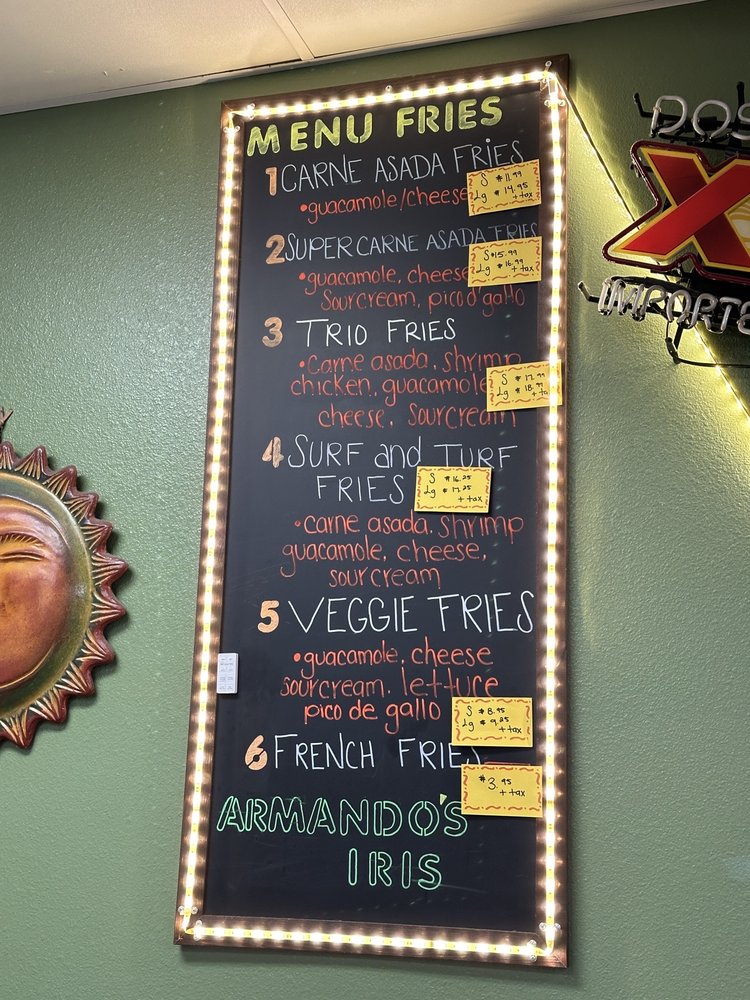 MENU FRIES
1 CARNE ASADA FRIES
•guacamole/cheese
S $11.99
Lg $14.95
+ tax
2 SUPER CARNE ASADA FRIES
•guacamole, cheese
Sourcream, pico d gallo
S $15.99
Lg $16.99
+ tax
3 TRIO FRIES
•Carne asada, shrimp
chicken, guacamole
cheese, Sourcream
S $17.99
Lg $18.99
+ tax
4 SURF and TURF
FRIES
S $16.25
Lg $17.25
+ tax
•carne asada, shrimp
guacamole, cheese,
sourcream
5 VEGGIE FRIES
•guacamole, cheese
sourcream, lettuce
pico de gallo
S $8.95
Lg $9.25
+ tax
6 FRENCH FRIES
$3.95
+ tax
ARMANDO'S
IRIS
DOS
X
IMPORTE